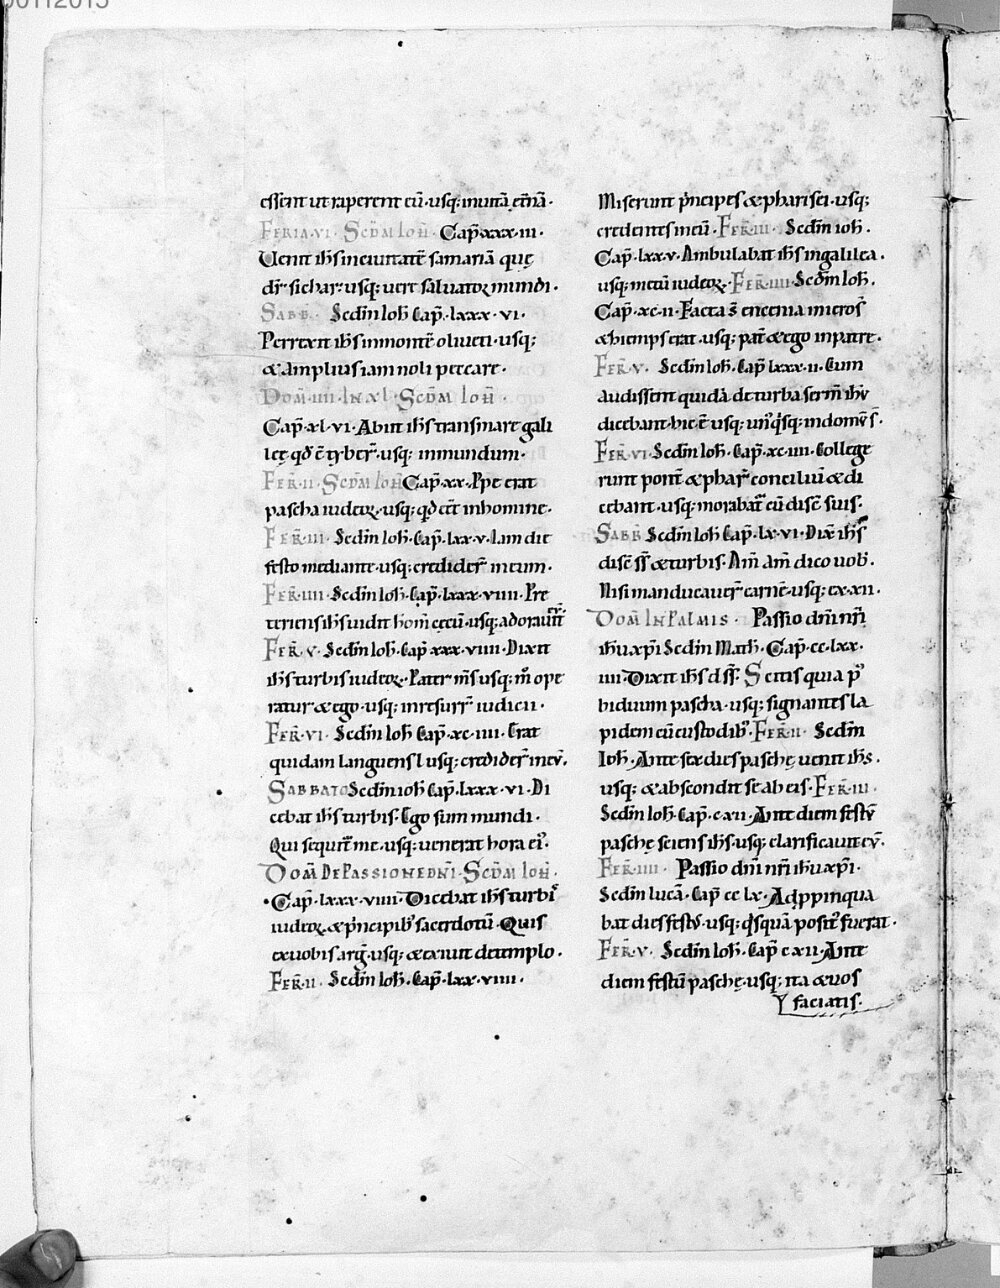 essent ut raperent eū· usq; inuitā etnā·
FERIA·VI· SCDM IOH̄· Cap̄·xxx·iii·
Uenit ih̄s in ciuitatē samariā quę
dr̄ sichar· usq; uere saluator mundi·
SABB· Scdm̄ ioh̄ Cap̄· lxxx·vi·
Perrexit ih̄s in montē oliueti· usq;
& amplius iam noli peccare·
DOM̄·IIII·IN XL· SCDM IOH̄·
Cap̄·xl·vi· Abiit ih̄s trans mare gali
leę qd̄ ē tyber̄· usq; in mundum·
FER̄·II· SCDM IOH̄ Cap̄·xx· Ppe erat
pascha iudeoꝝ· usq; qd̄ eēt in homine·
FER̄·III· Scdm̄ ioh̄· Cap̄· lxx·v· Iam die
festo mediante· usq; credider̄ in eum·
FER̄·IIII· Scdm̄ ioh̄· Cap̄· lxxx·viiii· Pre
teriens ih̄s uidit hom̄ cecū· usq; adorauīt
FER̄·V· Scdm̄ ioh̄· Cap̄ xxx·viiii· Dixit
ih̄s turbis iudeoꝝ· Pater m̄s usq; m̄ ope
ratur & ego· usq; in resurr̄ iudicii·
FER̄·VI· Scdm̄ ioh̄ Cap̄·xc·iiii· Erat
quidam languens l usq; credider̄ in eū·
SABBATO Scdm̄ ioh̄ Cap̄· lxxx·vi· Di
cebat ih̄s turbis· Ego sum mundi·
Qui sequit̄ me· usq; uenerat hora ei'·
DOM̄ DE PASSIONE DNI· SCDM IOH̄·
·Cap̄· lxxx·viiii· Dicebat ih̄s turbis̄
iudeoꝝ & p̄ncipib; sacerdotū· Quis
ex uobis arḡ· usq; & exiuit de templo·
FER̄·II· Scdm̄ ioh̄· Cap̄· lxx·viiii·
Miserunt p̄ncipes & pharisei· usq;
credentes in eū· FER̄·III· Scdm̄ ioh̄·
Cap̄· lxx·v· Ambulabat ih̄s in galilea·
usq; metū iudeoꝝ· FER̄·IIII· Scdm̄ ioh̄·
Cap̄·xc·ii· Facta s̄ encenia in ieros̄
& hiemps erat· usq; pat̄ & ego in patre·
FER̄·V· Scdm̄ ioh̄· Cap̄ lxxx·ii· Cum
audissent quidā de turba serm̄ ih̄u
dicebant· hic ē usq; un'q'sq; in domū s̄·
FER̄·VI· Scdm̄ ioh̄· Cap̄·xc·iiii· College
runt pont̄ & phar̄ conciliū & di
cebant· usq; morabat̄ cū disc̄ suis·
SABB̄ Scdm̄ ioh̄ Cap̄· lx·vi· Dix̄ ih̄s
disc̄ s̄s & turbis· Am̄ am̄ dico uob̄·
Nisi manducauer̄ carnē· usq; ex·xii·
DOM̄ IN PALMIS· Passio dn̄i nr̄i
ih̄u xp̄i Scdm̄ Math̄· Cap̄· cc·lxx·
iiii· Dixit ih̄s d s̄s̄· Scitis quia p'
biduum pascha· usq; signantes la
pidem cū custodib;· FER̄·II· Scdm̄
Ioh̄· Ante sex dies paschę uenit ih̄s·
usq; & abscondit se ab eis· FER̄·III·
Scdm̄ ioh̄· Cap̄ c·xii· Ante diem festū
paschę sciens ih̄s· usq; clarificauit eū·
FER̄·IIII· Passio dn̄i nr̄i ih̄u xp̄i·
Scdm̄ lucā· Cap̄ cc lx· Adp̄pinqua
bat dies fest'· usq; q'squā posit' fuerat·
FER̄·V· Scdm̄ ioh̄· Cap̄ c xii· Ante
diem festū paschę· usq; ita & uos
faciatis·